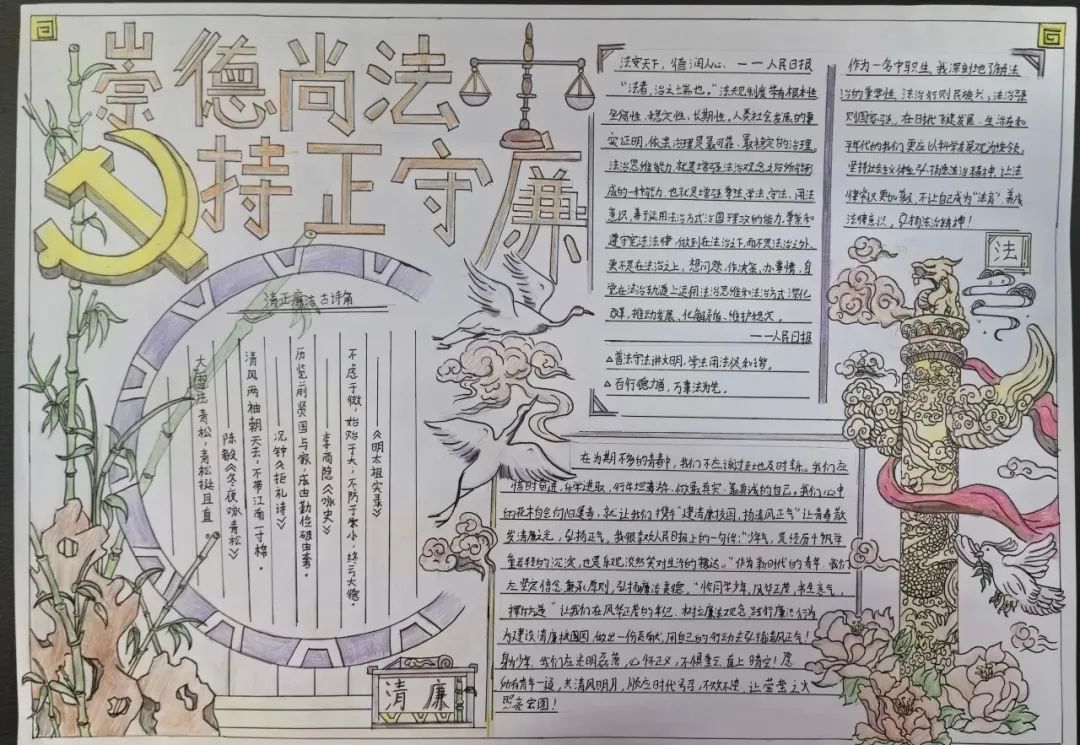 崇德尚法
持正守廉
清正廉洁古诗篇
不虑于微，始贻于大，不防于小，终亏大德。
——《明太祖实录》
历览前贤国与家，成由勤俭破由奢。
——李商隐《咏史》
清风两袖朝天去，不带江南一寸棉。
——况钟《拒礼诗》
大雪压青松，青松挺且直。
——陈毅《冬夜咏青松》
清廉
法安天下，德润人心。——人民日报
“法者，治之端也。”法规制度带有根本性
全局性、稳定性、长期性。人类社会发展的事
实证明，依法治理是最可靠、最稳定的治理。
法治思维能力，就是增强法治观念
成的一种能力，也就是增强尊法、学法、守法、用法
意识，善于运用法治方式治国理政的能力，要牢
遵守宪法法律，做到在法治之下，而不是法治之外、
更不是在法治之上，想问题、作决策、办事情，自
觉在法治轨道上运用法治思维和法治方式深化
改革、推动发展、化解矛盾、维护稳定。
——人民日报
△普法守法讲文明，学法用法促和谐。
△百行德为首，万事法为先。
作为一名中职生，我深刻地了解法
治的重要性，法治行则民族兴，法治强
则国家强。在时代飞速发展，生活在和
平年代的我们更应以科学发展观为统领，
坚持社会主义，弘扬宪法法治精神，让法
律常识更加普及，不让自己成为“法盲”，养成
法律意识，弘扬法治精神！
法
在为期不多的青春中，我们不应该过且地及时。我们应
惜时奋进，乐学进取，行年坦荡，做最真实、最真诚的自己。我们心中
的花木自会向阳美春，就让我们携“建清廉校园，扬清风正气”让青春散
发清廉之光，弘扬正气，我很喜欢人民日报上的一句话：“少年气，是经历千帆举
重若轻的沉淀，也是乐观淡然笑对生活的豁达。”作为新时代的青年，我们
应坚定信念，秉承原则，弘扬廉洁美德，“恰同学少年，风华正茂，书生意气，
挥斥方遒”让我们在风华正茂的年纪，树立廉洁观念，践行廉洁行为
为建设清廉校园，做出一份贡献，用自己的行动去弘扬清风正气！
身为少年，我们应光明磊落，心怀正义，不惧重，直上晴空！愿
所有青年一道，共清风明月，顺应时代号召，不败不堕，让萤萤之火
照亮宏图！